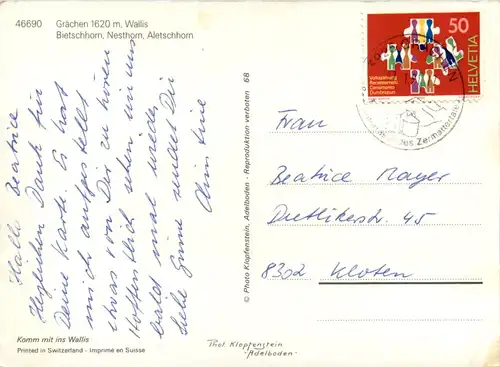 46690 Grächen 1620 m, Wallis
Bietschhorn, Nesthorn, Aletschhorn
Hallo Beatrice
Herzlichen Dank für
Deine Karte. Es hat
mich aufgestellt
etwas von Dir zu hören
Hoffentlich sehen wir uns
bald mal wieder
liebe Grüsse sendet Dir
Komm mit ins Wallis
Printed in Switzerland - Imprimé en Suisse
© Photo Klopfenstein, Adelboden - Reproduktion verboten 68
Phot. Klopfenstein
Adelboden
50
HELVETIA
Volkszählung
Recensement
Censimento
Dumbraziun
des Zermattertales
Frau
Beatrice Mayer
Dietlikerstr. 45
8302 Kloten